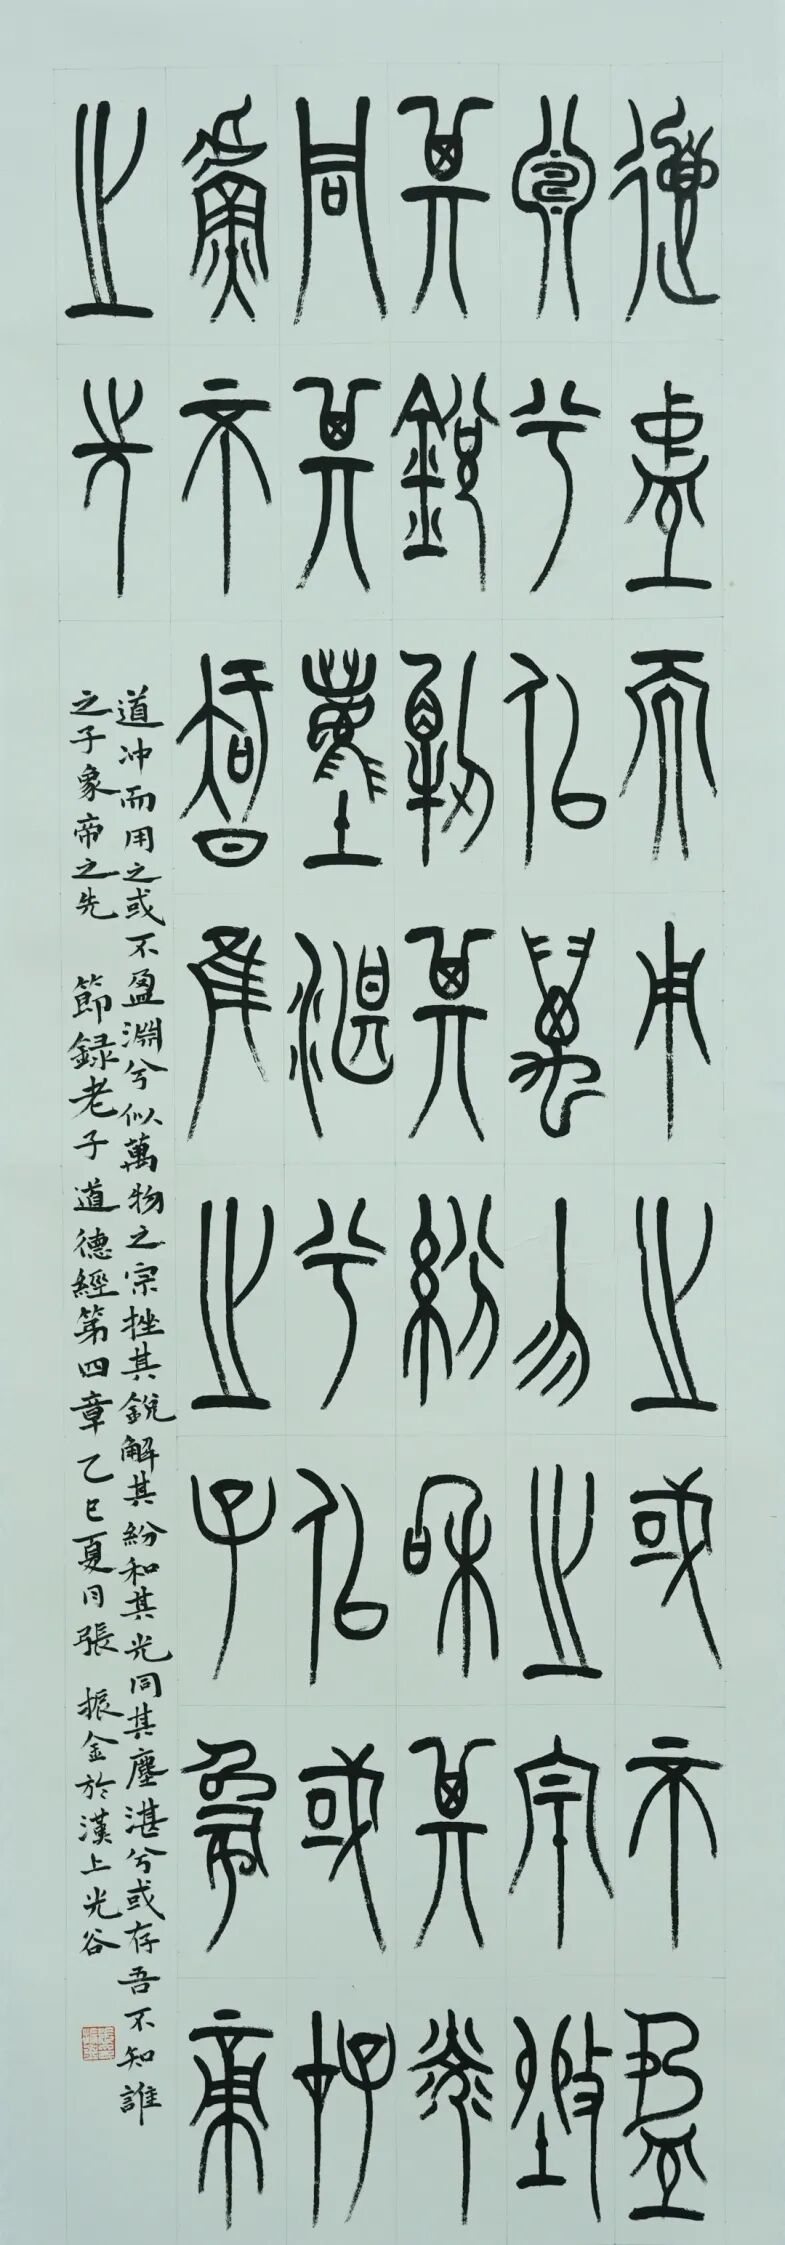 道盅而用之或不盈
淵兮似萬勿之宗挫
其銳解其紛和其光
同其塵湛兮似或存
吾不智隹之子象帝
之先
道冲而用之或不盈淵兮似萬物之宗挫其銳解其紛和其光同其塵湛兮或存吾不知誰
之子象帝之先 節録老子道德經第四章乙巳夏月張振金於漢上光谷